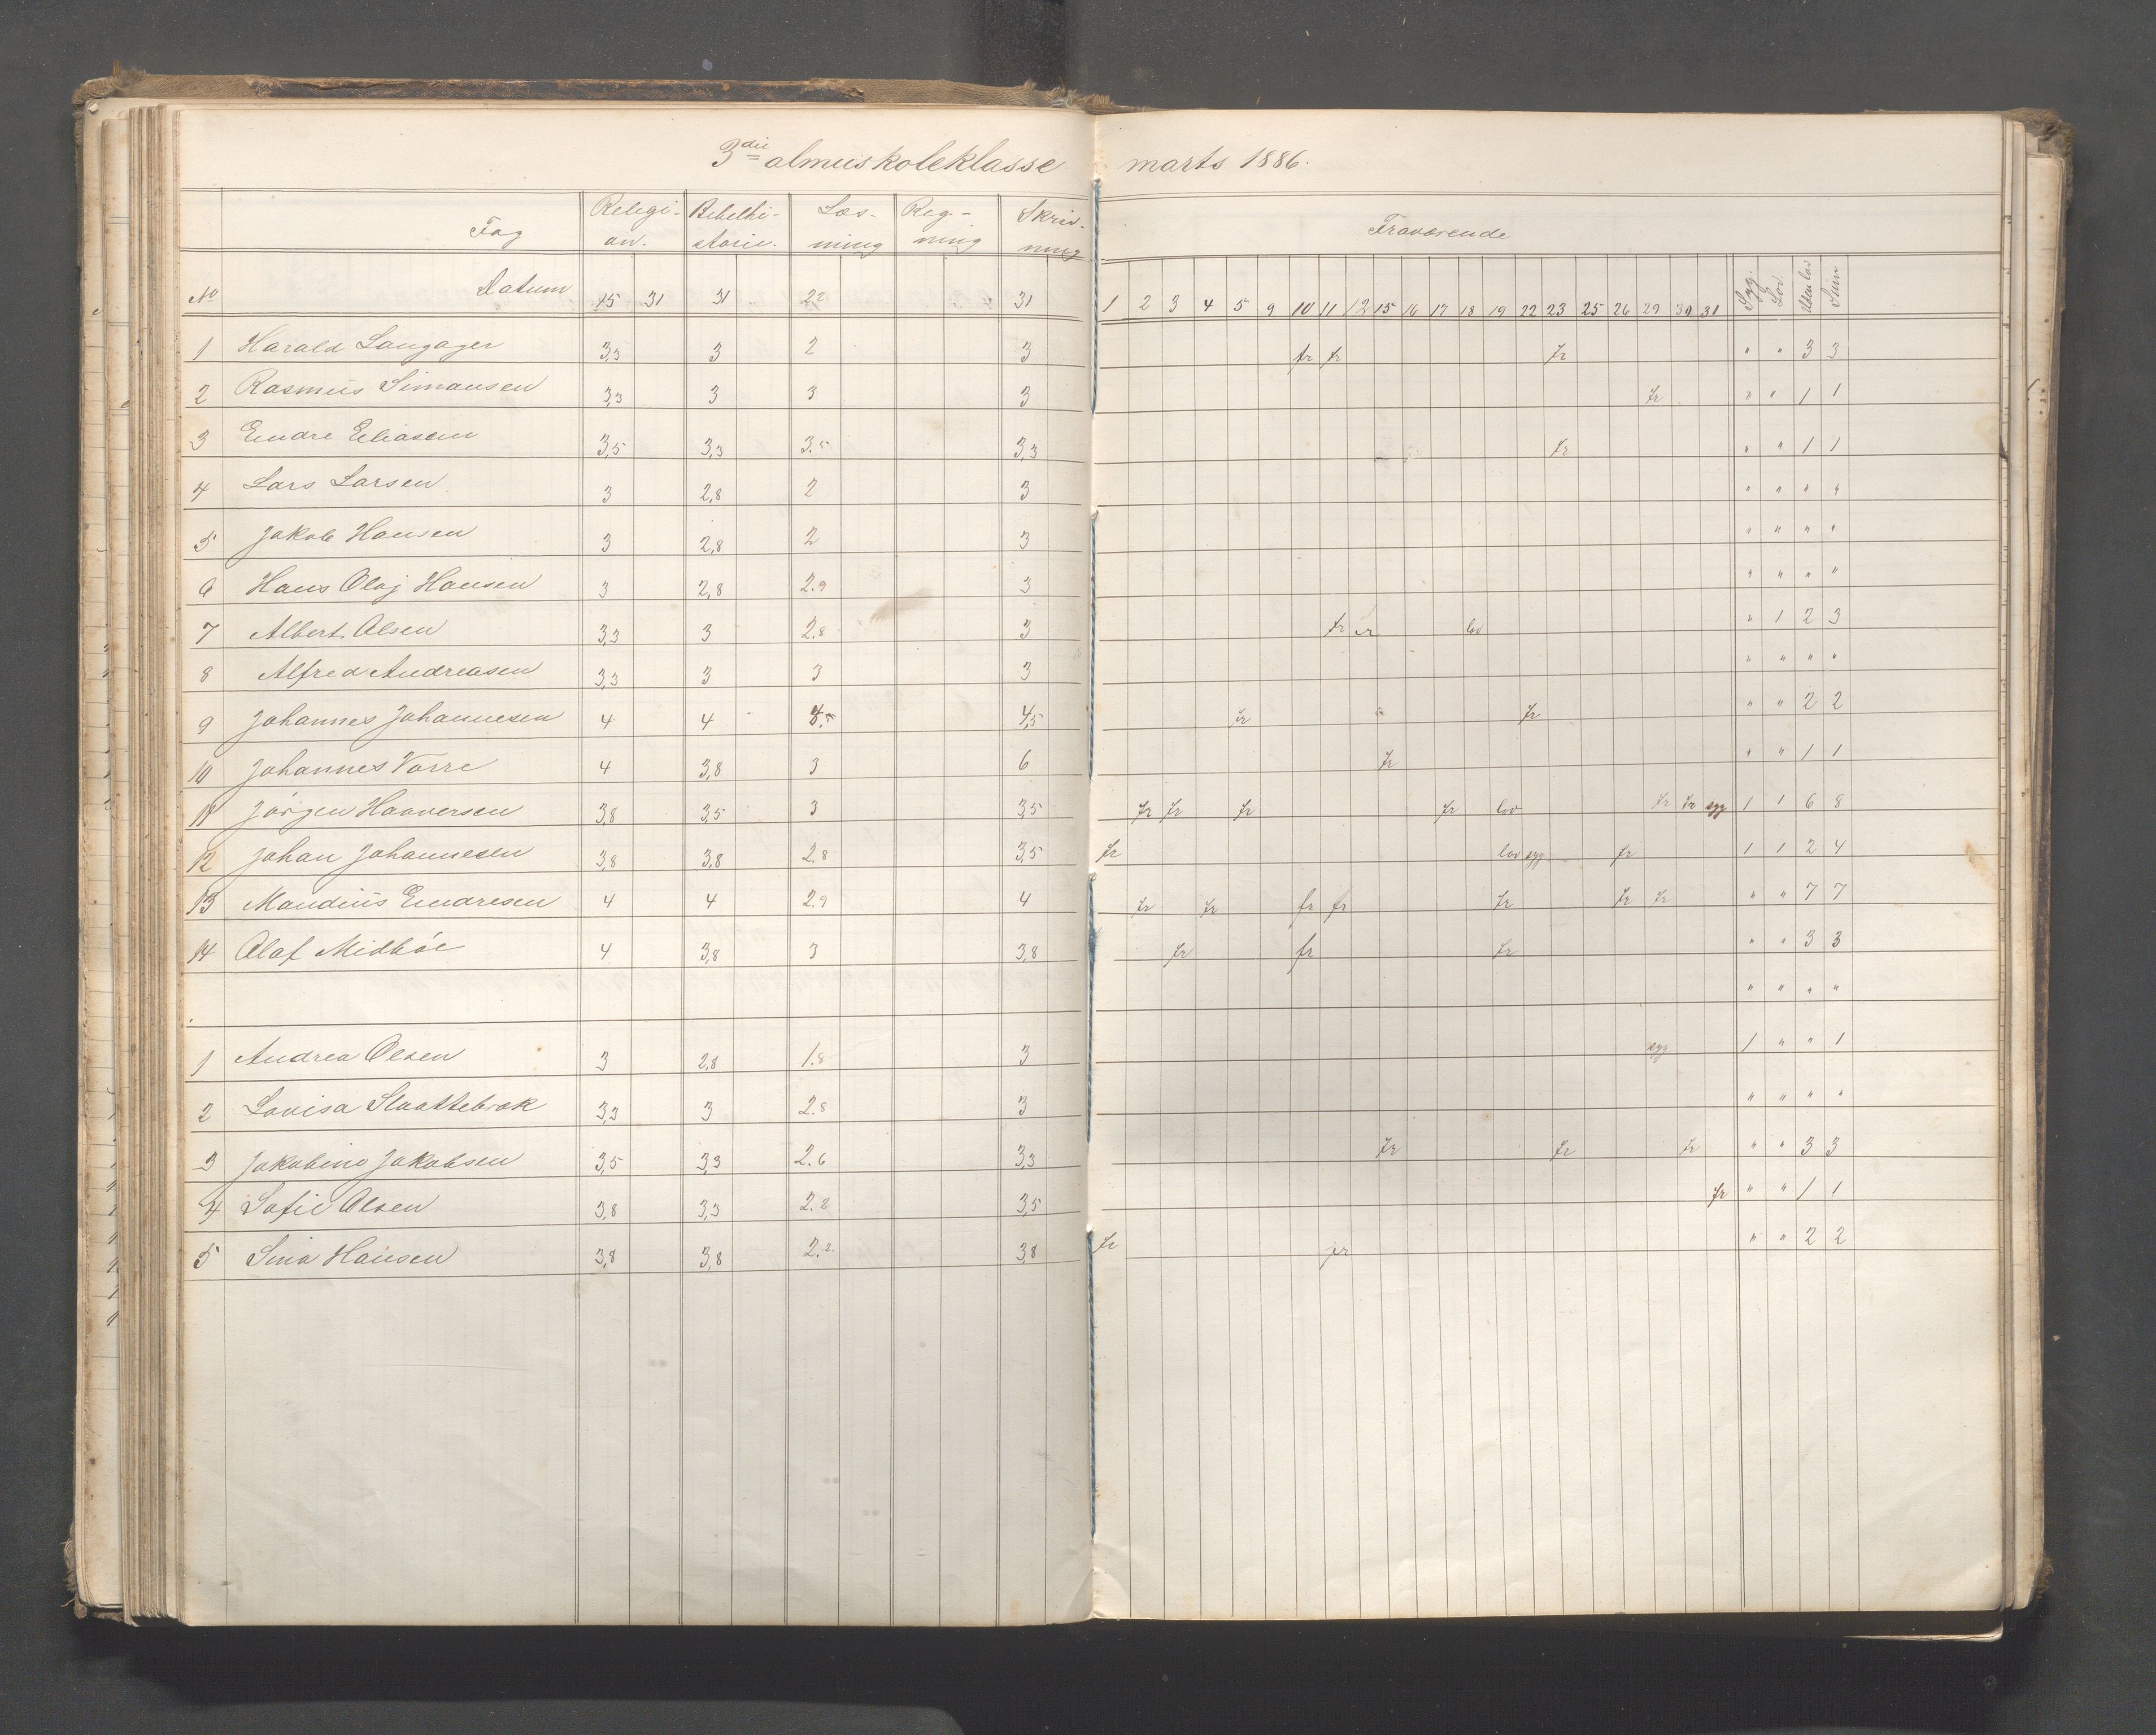 3die almueskoleklasse marts 1886.
Fag Religi- Bibelhi- Læs- Reg- Skriv- Fraværende
on. storie. ning ning ning
No Datum 15 31 31 22 31 1 2 3 4 5 9 10 11 12 15 16 17 18 19 22 23 25 26 29 30 31 Syg. Lov. Uden lov Sum
1 Harald Langager 3,3 3 2 3 fr fr fr " " 3 3
2 Rasmus Simonsen 3,3 3 3 3 fr " " 1 1
3 Endre Eliasen 3,5 3,3 3.5 3,3 fr " " 1 1
4 Lars Larsen 3 2,8 2 3 " " " "
5 Jakob Hansen 3 2,8 2 3 " " " "
6 Hans Olaj Hansen 3 2,8 2.9 3 " " " "
7 Albert Olsen 3,3 3 2.8 3 fr fr lov " 1 2 3
8 Alfred Andreasen 3,3 3 3 3 " " " "
9 Johannes Johannesen 4 4 4,5 fr fr " " 2 2
10 Johannes Vorre 4 3,8 3 6 fr " " 1 1
11 Jörgen Haaversen 3,8 3,5 3 3,5 fr fr fr fr lov fr fr syg 1 1 6 8
12 Johan Johannesen 3,8 3,8 2.8 3,5 fr lov syg fr 1 1 2 4
13 Mandius Endresen 4 4 2.9 4 fr fr fr fr fr fr fr " " 7 7
14 Olaf Midböe 4 3,8 3 3,8 fr fr fr " " 3 3
" " " "
1 Andrea Olsen 3 2,8 1.8 3 syg 1 " " 1
2 Lovisa Slaattebræk 3,3 3 2.8 3 " " " "
3 Jakobine Jakobsen 3,5 3,3 2.6 3,3 fr fr fr " " 3 3
4 Sofie Olsen 3,8 3,3 2.2 3,5 fr " " 1 1
5 Sina Hansen 3,8 3,8 2.2. 3,8 fr fr " " 2 2